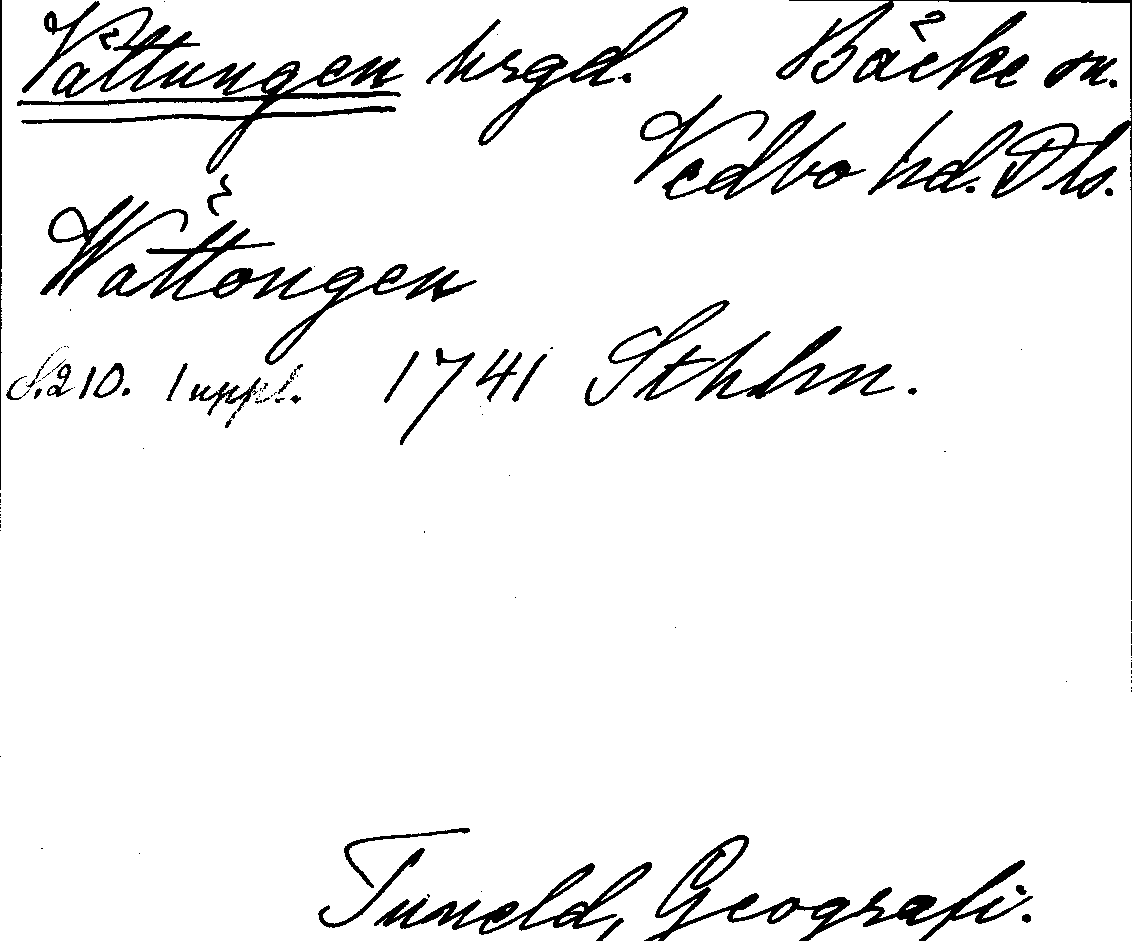 Vättungen hrgd. Bäcke sn.
Vedbo hd. Dls.
Wättongen
S. 210. 1 uppl. 1741 Sthlm.
Tuneld, Geografi.